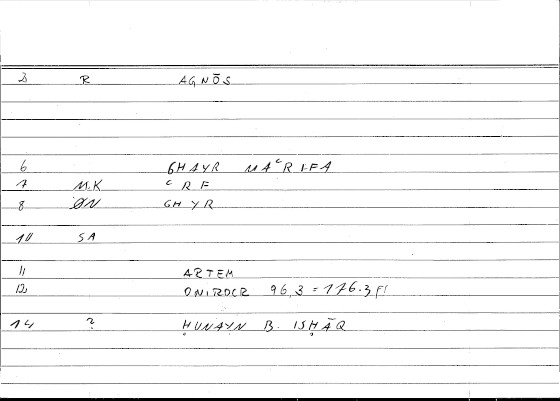 3 R AGNŌS
6 GHAYR MAʿRIFA
7 M.K ʿRF
8 ØN GHYR
10 SA
11 ARTEM
12 ONIROCR 96,3 = 176.3 f!
14 ? ḤUNAYN B. ISḤĀQ